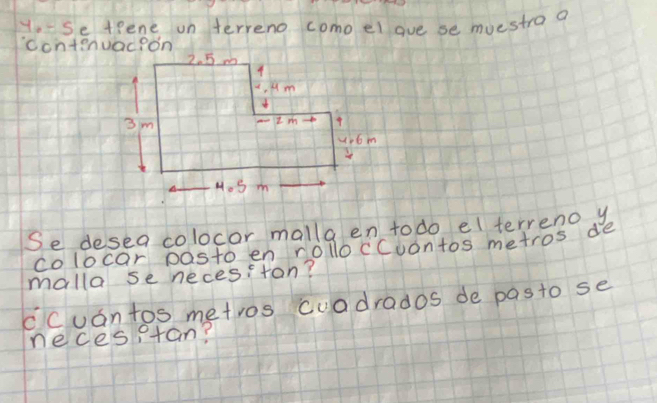 4.- Se tiene un terreno como el que se muestra a
continuación
2.5 m
1.4m
3m
2m
1.6m
4.5 m
Se desea colocar malla en todo el terreno y
colocar pasto en rollo ¿Cuantos metros de
malla se necesitan?
¿Cuántos metros cuadrados de pasto se
necesitan?